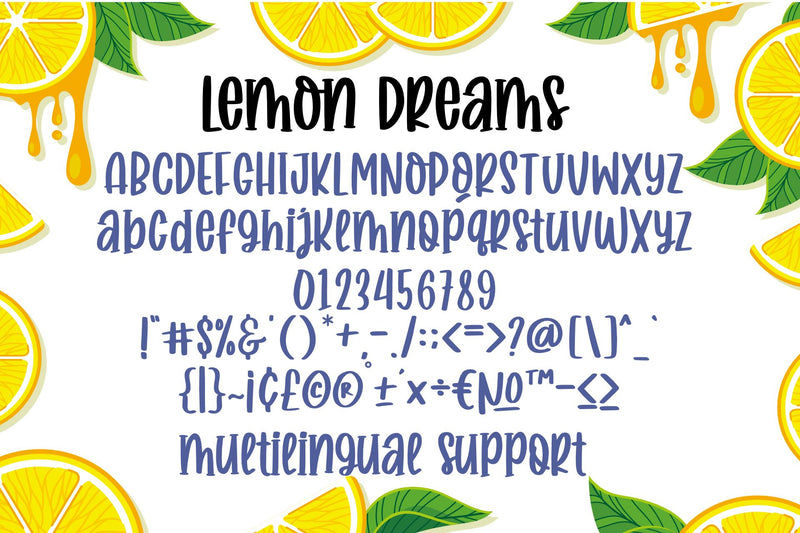 Lemon Dreams
ABCDEFGHIJKLMNOPQRSTUVWXYZ
abcdefghijklmnopqrstuvwxyz
0123456789
!"#$%&'()*+,-./:;<=>?@[\]^_`
{|}~¡¢£©®°±´×÷€№™−≤≥
multilingual support